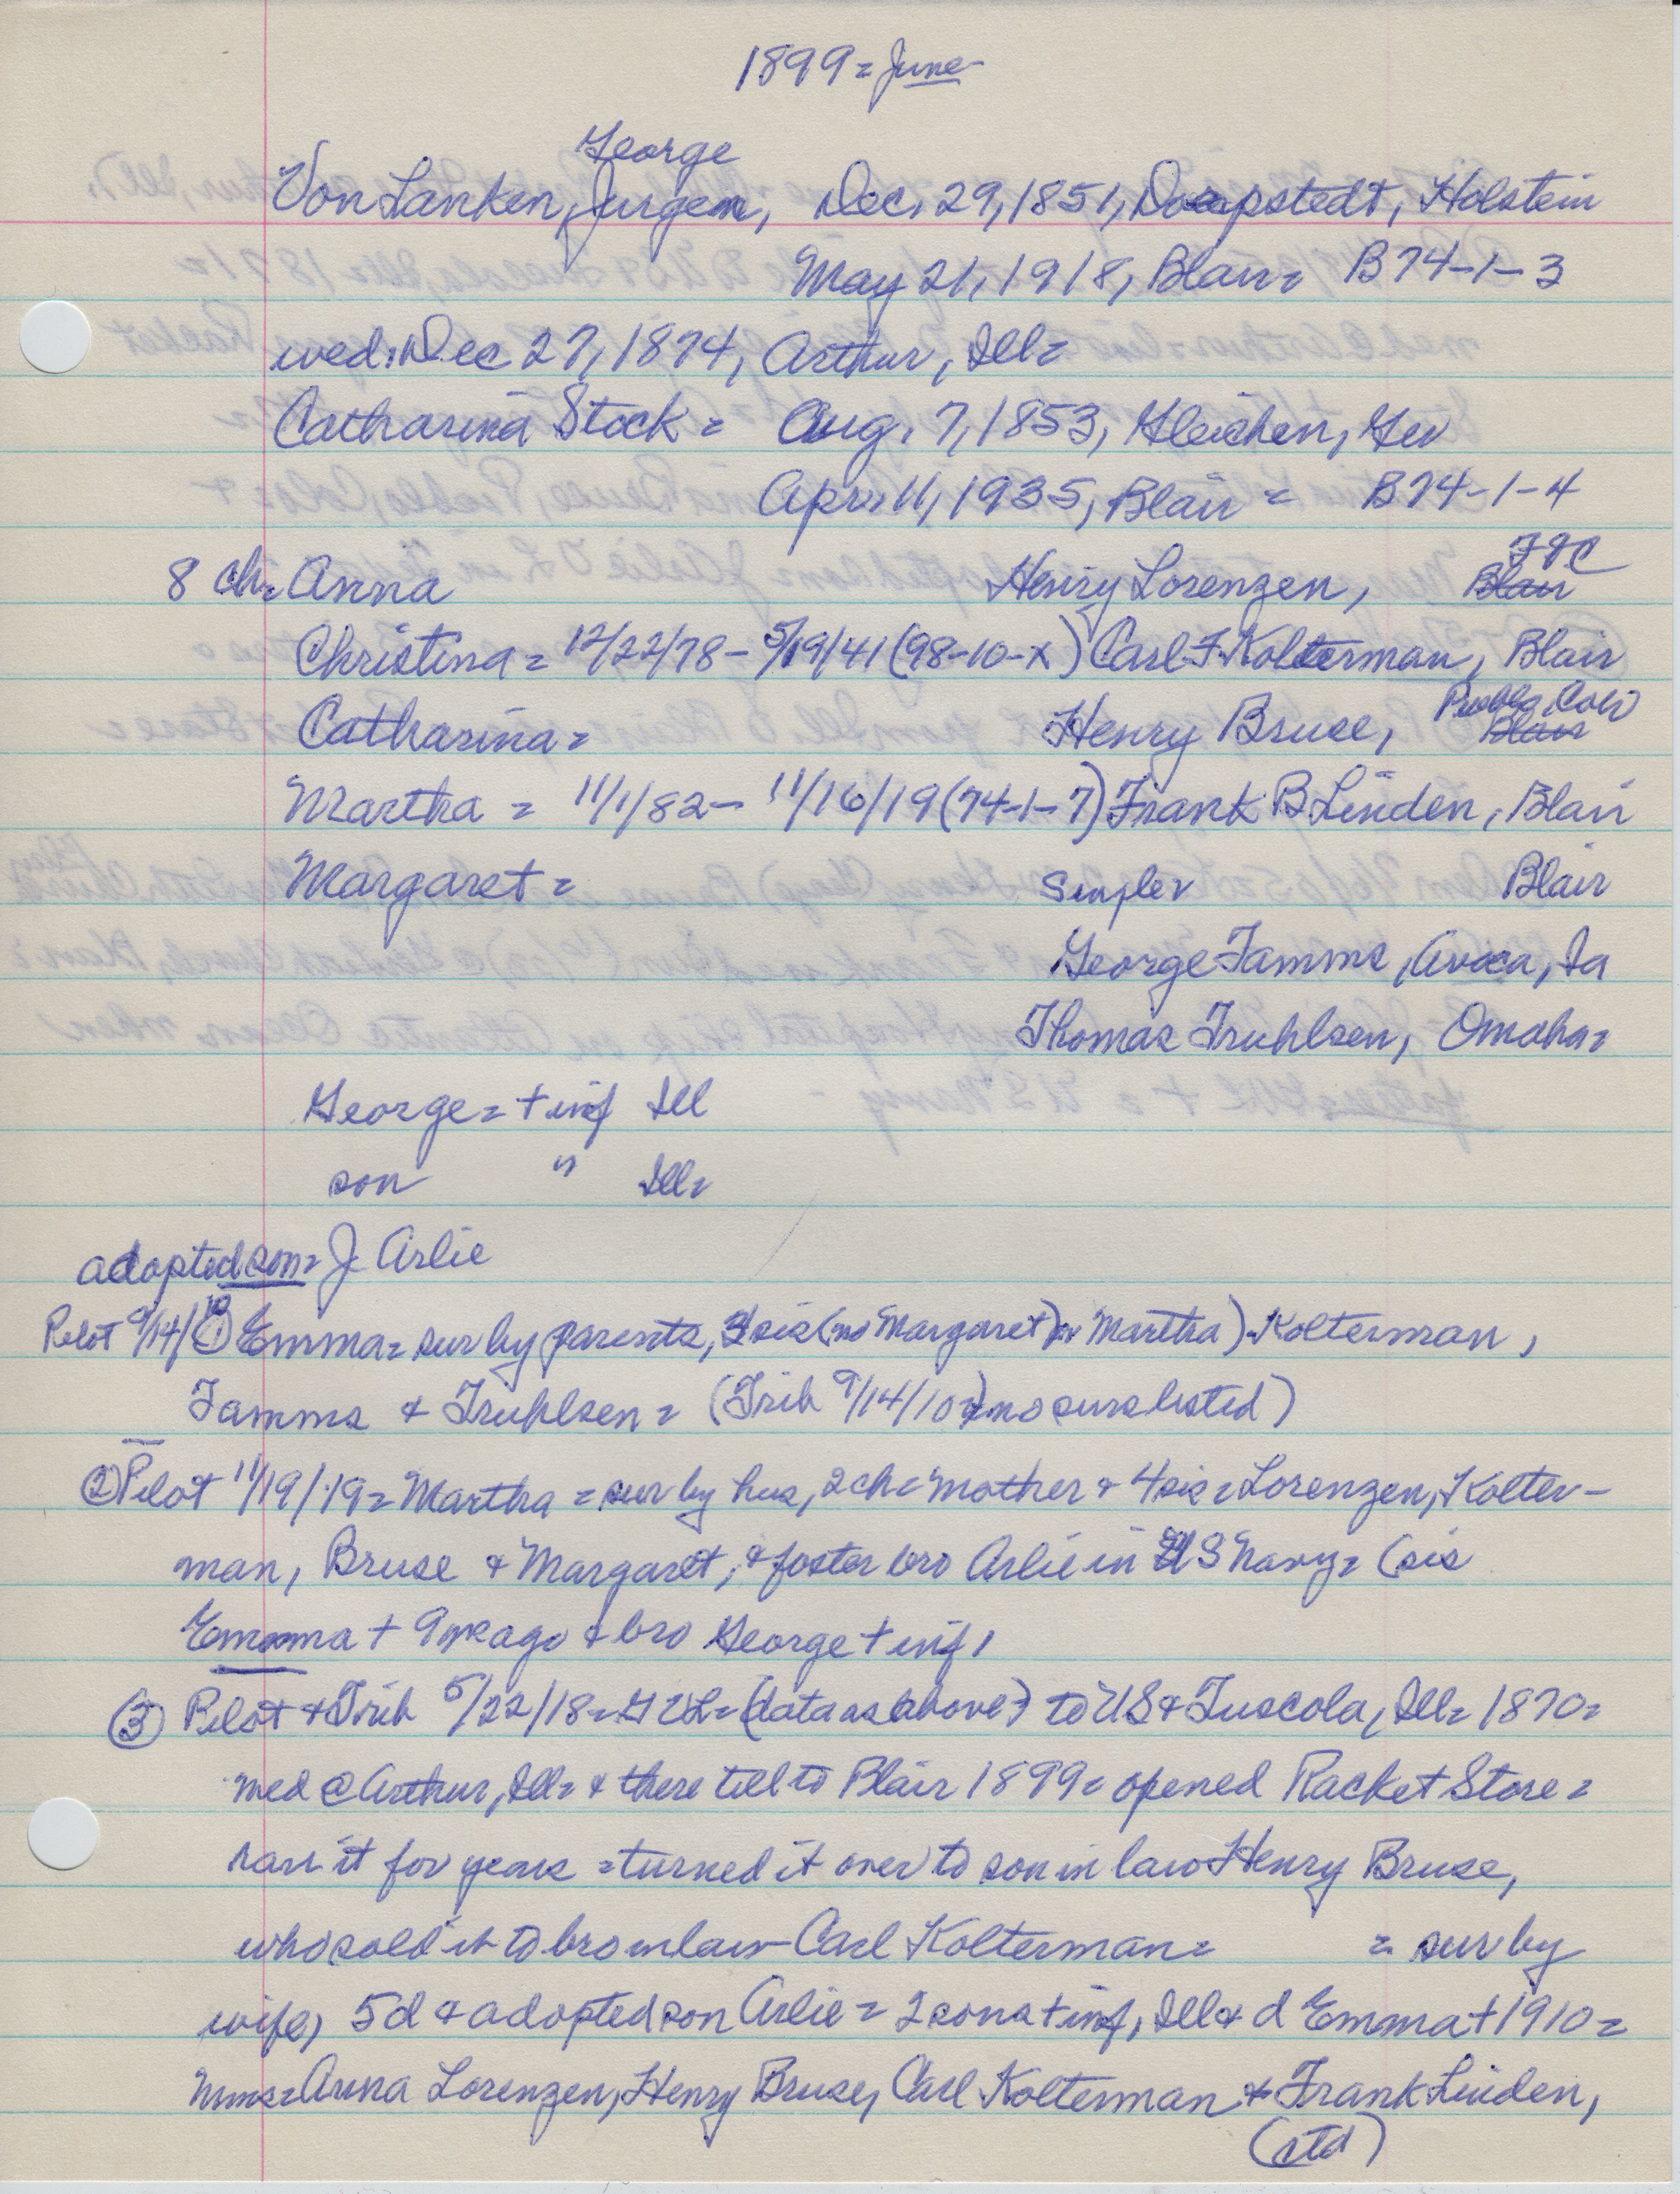 1899 = June
George
VonLanken, Jurgen, Dec. 29, 1851, Holstein
May 21, 1918, Blair = B74-1-3
wed: Dec 27, 1874, Arthur, Ill =
Catharina Stock = Aug. 7, 1853, Gleichen, Ger
Apr. 11, 1935, Blair = B74-1-4
8 ch = Anna Henry Lorenzen, Blair
Christina = 12/22/78 - 5/19/41 (98-10-x) Carl F Kolterman, Blair
Catharina = Henry Bruse, Pueblo, Colo Blair
Martha = 11/1/82 - 11/16/19 (74-1-7) Frank B Linden, Blair
Margaret = Blair
George Tamms, Avoca, Ia
Thomas Truhlsen, Omaha =
George = + inf Ill
son " Ill =
adopted son = J Arlie
Pilot 9/14/10 ① Emma = sur by parents, sis (no Margaret or Martha) Kolterman,
Tamms & Truhlsen = (Trib 9/14/10 = no surs listed)
② Pilot 11/19/19 = Martha = sur by hus, 2 ch = mother & 4 sis = Lorenzen, Kolter-
man, Bruse & Margaret, & foster bro Arlie in US Navy = (sis
Emma + 9 yrs ago & bro George + inf,
③ Pilot & Trib 5/22/18 = GVL = (data as above) to US & Tuscola, Ill = 1870 =
med @ Arthur, Ill = & there till to Blair 1899 = opened Racket Store =
ran it for years = turned it over to son in law Henry Bruse,
who sold it to bro in law Carl Kolterman = = sur by
wife, 5 d & adopted son Arlie = 2 sons + inf, Ill & d Emma + 1910 =
Mmes = Anna Lorenzen, Henry Bruse, Carl Kolterman & Frank Linden,
(ctd)